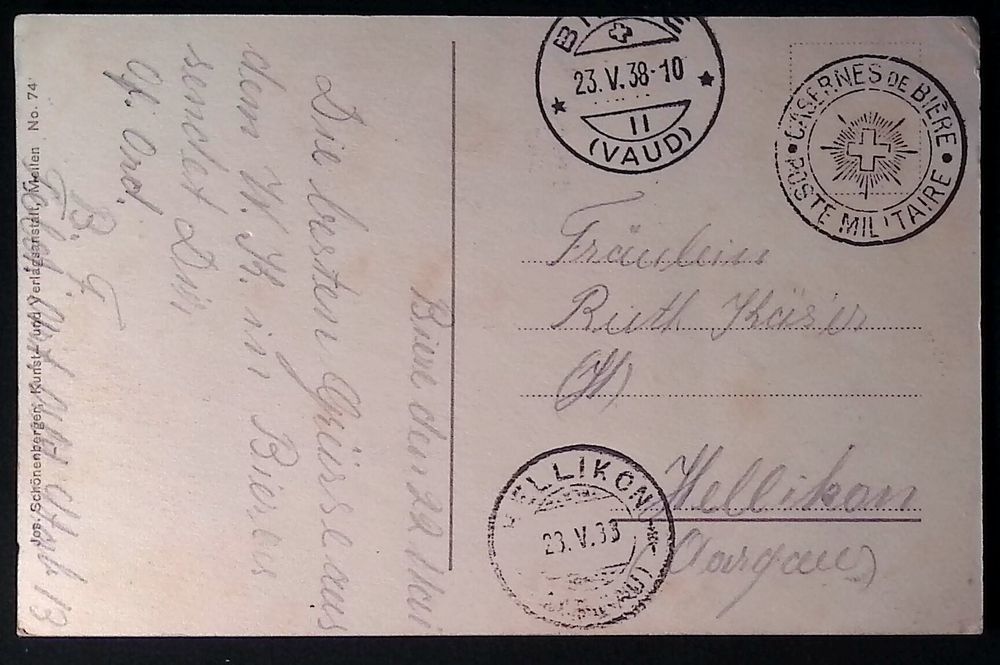 BIÈRE
23.V.38-10
II
(VAUD)
CASERNES DE BIÈRE
POSTE MILITAIRE
Fräulein
Ruth Käser
Hellikon
(Aargau)
HELLIKON
23.V.38
(AARGAU)
Biere den 22 Mai
Die besten Grüsse aus
dem W.K. in Biere
sendet Dir
Jos. Schönenberger, Kunst- und Verlagsanstalt, Meilen No. 74